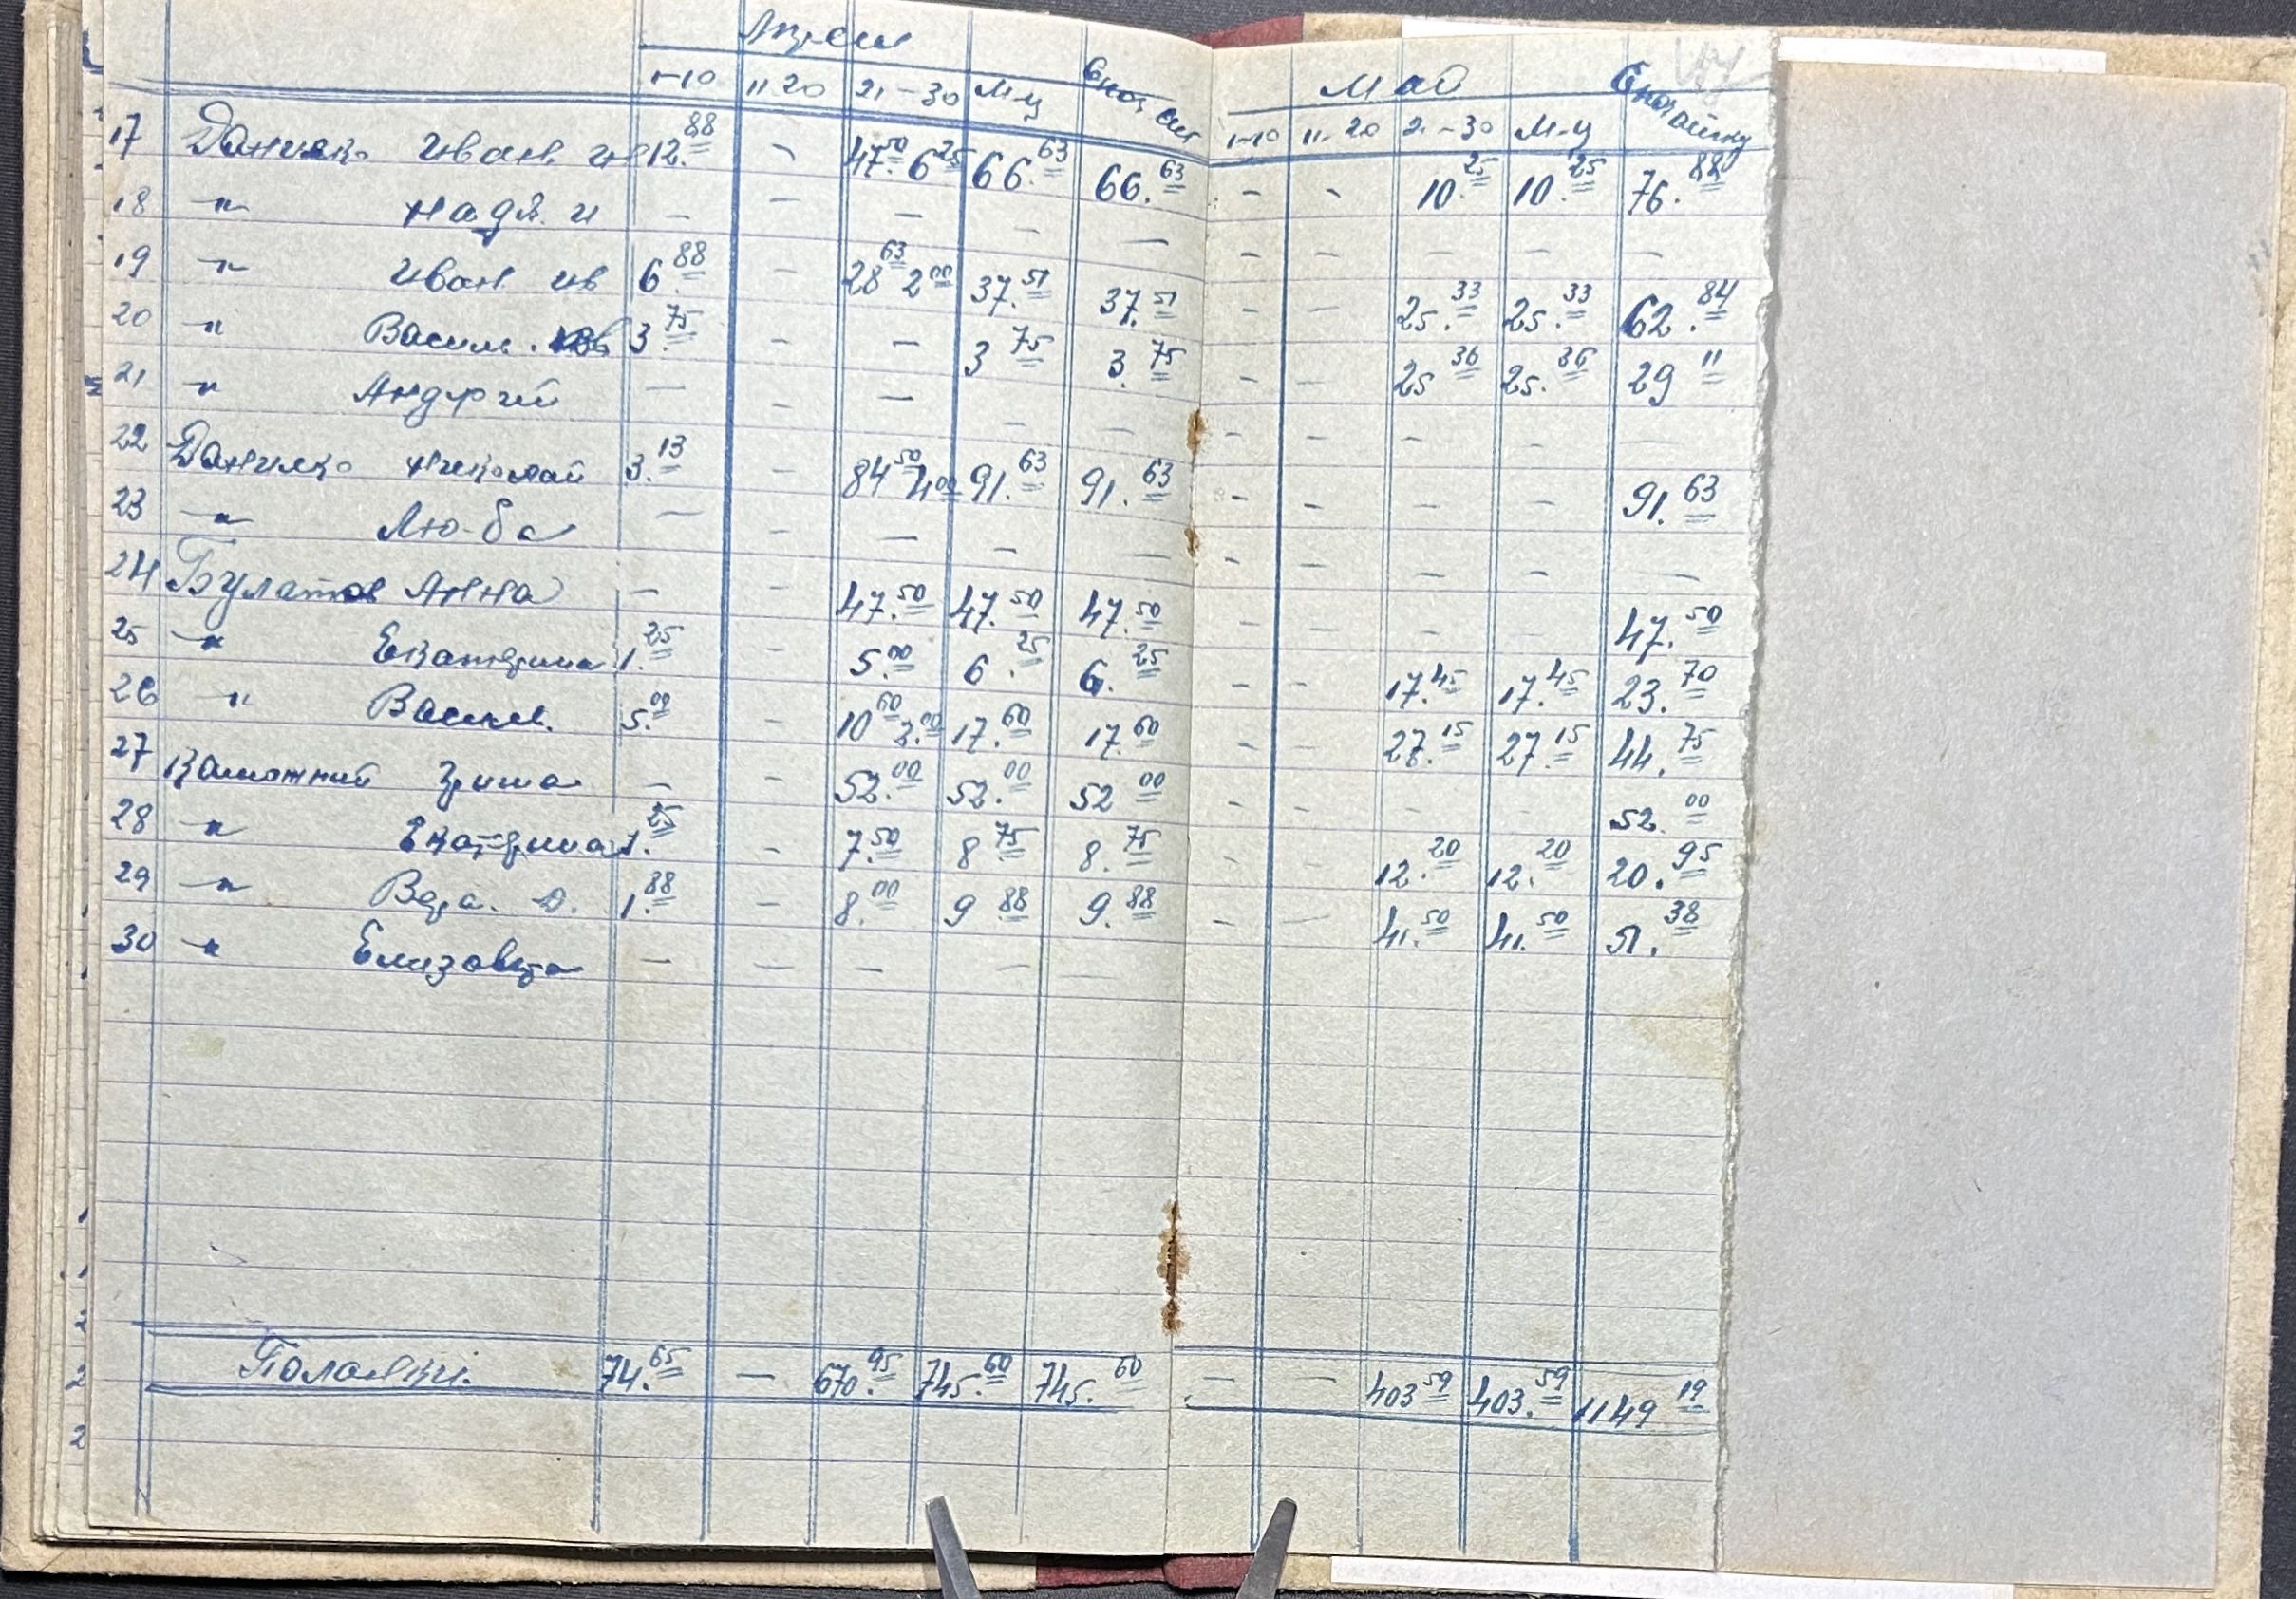 Апрель Май
1-10 11 20 21-30 М-ц 1-10 11-20 21-30 М-ц
17 Данилко Иван 12.88 - 47.50 6.25 66.63 66.63 - - 10.25 10.25 76.88
18 " Надя. и - - - - - - - - - -
19 " Иван ив 6.88 - 28.63 2.00 37.51 37.51 - - 25.33 25.33 62.84
20 " Василь. 3.75 - - 3.75 3.75 - - 25.36 25.36 29.11
21 " Андрій - - - - - - - - - -
22 Данилко Николай 3.13 - 84.50 4.00 91.63 91.63 - - - - 91.63
23 " Лю-ба - - - - - - - - - -
24 Булатов Анна - - 47.50 47.50 47.50 - - - - 47.50
25 " Екатерина 1.25 5.00 6.25 6.25 - - 17.45 17.45 23.70
26 " Васил. 5.00 - 10.60 2.00 17.60 17.60 - - 27.15 27.15 44.75
27 - - 52.00 52.00 52.00 - - - - 52.00
28 " Екатерина 1.25 - 7.50 8.75 8.75 - - 12.20 12.20 20.95
29 " Вера. 1.88 - 8.00 9.88 9.88 - - 41.50 41.50 51.38
30 " Елизавета - - - - -
74.65 - 670.95 745.60 745.60 - - 403.59 403.59 1149.19